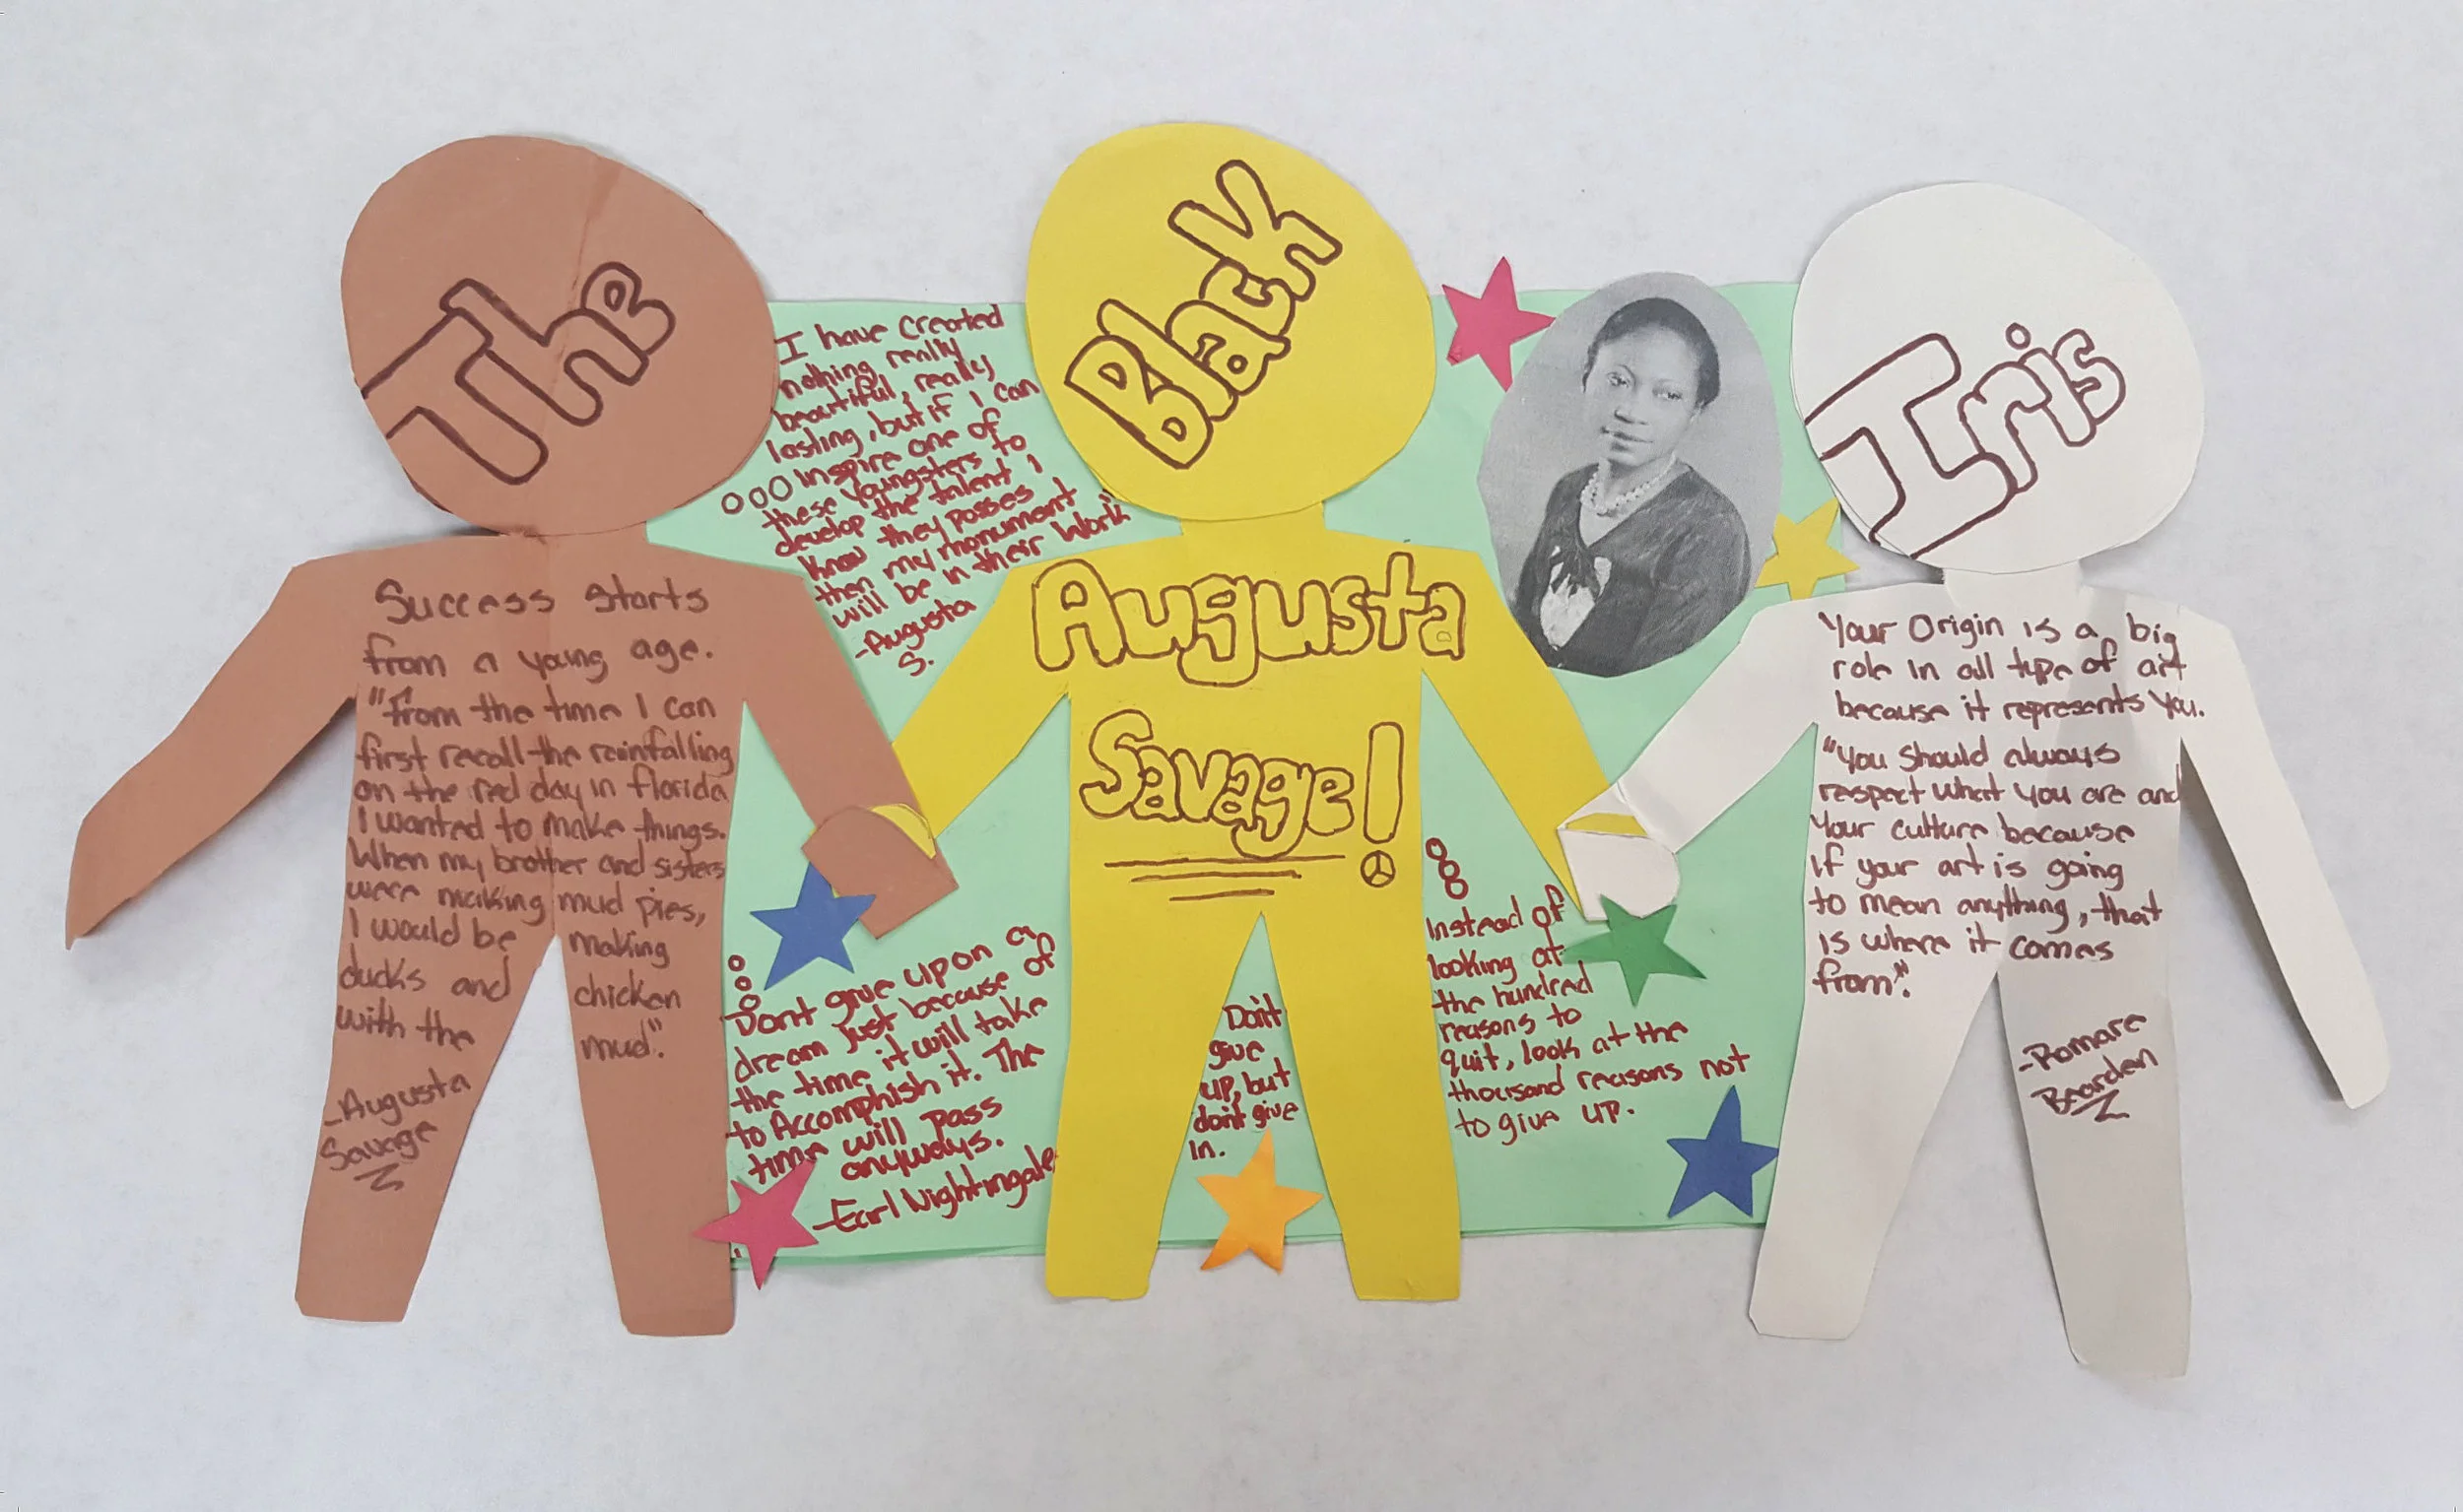 The
Black
Iris
Success starts
from a young age.
"From the time I can
first recall the rainfalling
on the red day in florida
I wanted to make things.
When my brother and sisters
were making mud pies,
I would be making
ducks and chicken
with the mud".
-Augusta
Savage
I have created
nothing really
beautiful, really
lasting, but if I can
inspire one of
these youngsters to
develop the talent I
know they posses
then my monument
will be in their work
-Augusta
S.
Augusta
Savage!
Dont give upon a
dream just because of
the time it will take
to Accomphish it. The
time will pass
anyways.
-Earl Nightingale
Don't
give
up, but
don't give
in.
Instead of
looking at
the hundred
reasons to
quit, look at the
thousand reasons not
to give up.
Your Origin is a big
role in all type of art
because it represents you.
"You should always
respect what you are and
your culture because
if your art is going
to mean anything, that
is where it comes
from".
-Romare
Bearden